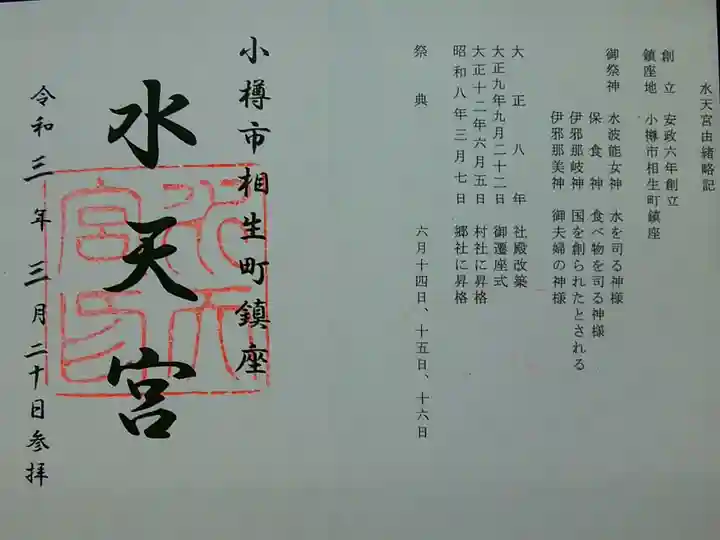 水天宮由緒略記
創立 安政六年創立
鎮座地 小樽市相生町鎮座
御祭神 水波能女神 水を司る神様
保食神 食べ物を司る神様
伊邪那岐神 国を創られたとされる
伊邪那美神 御夫婦の神様
大正八年 社殿改築
大正九年九月二十二日 御遷座式
大正十二年六月五日 村社に昇格
昭和八年三月七日 郷社に昇格
祭典 六月十四日、十五日、十六日
小樽市相生町鎮座
水天宮
令和三年三月二十日参拝
水天宮印